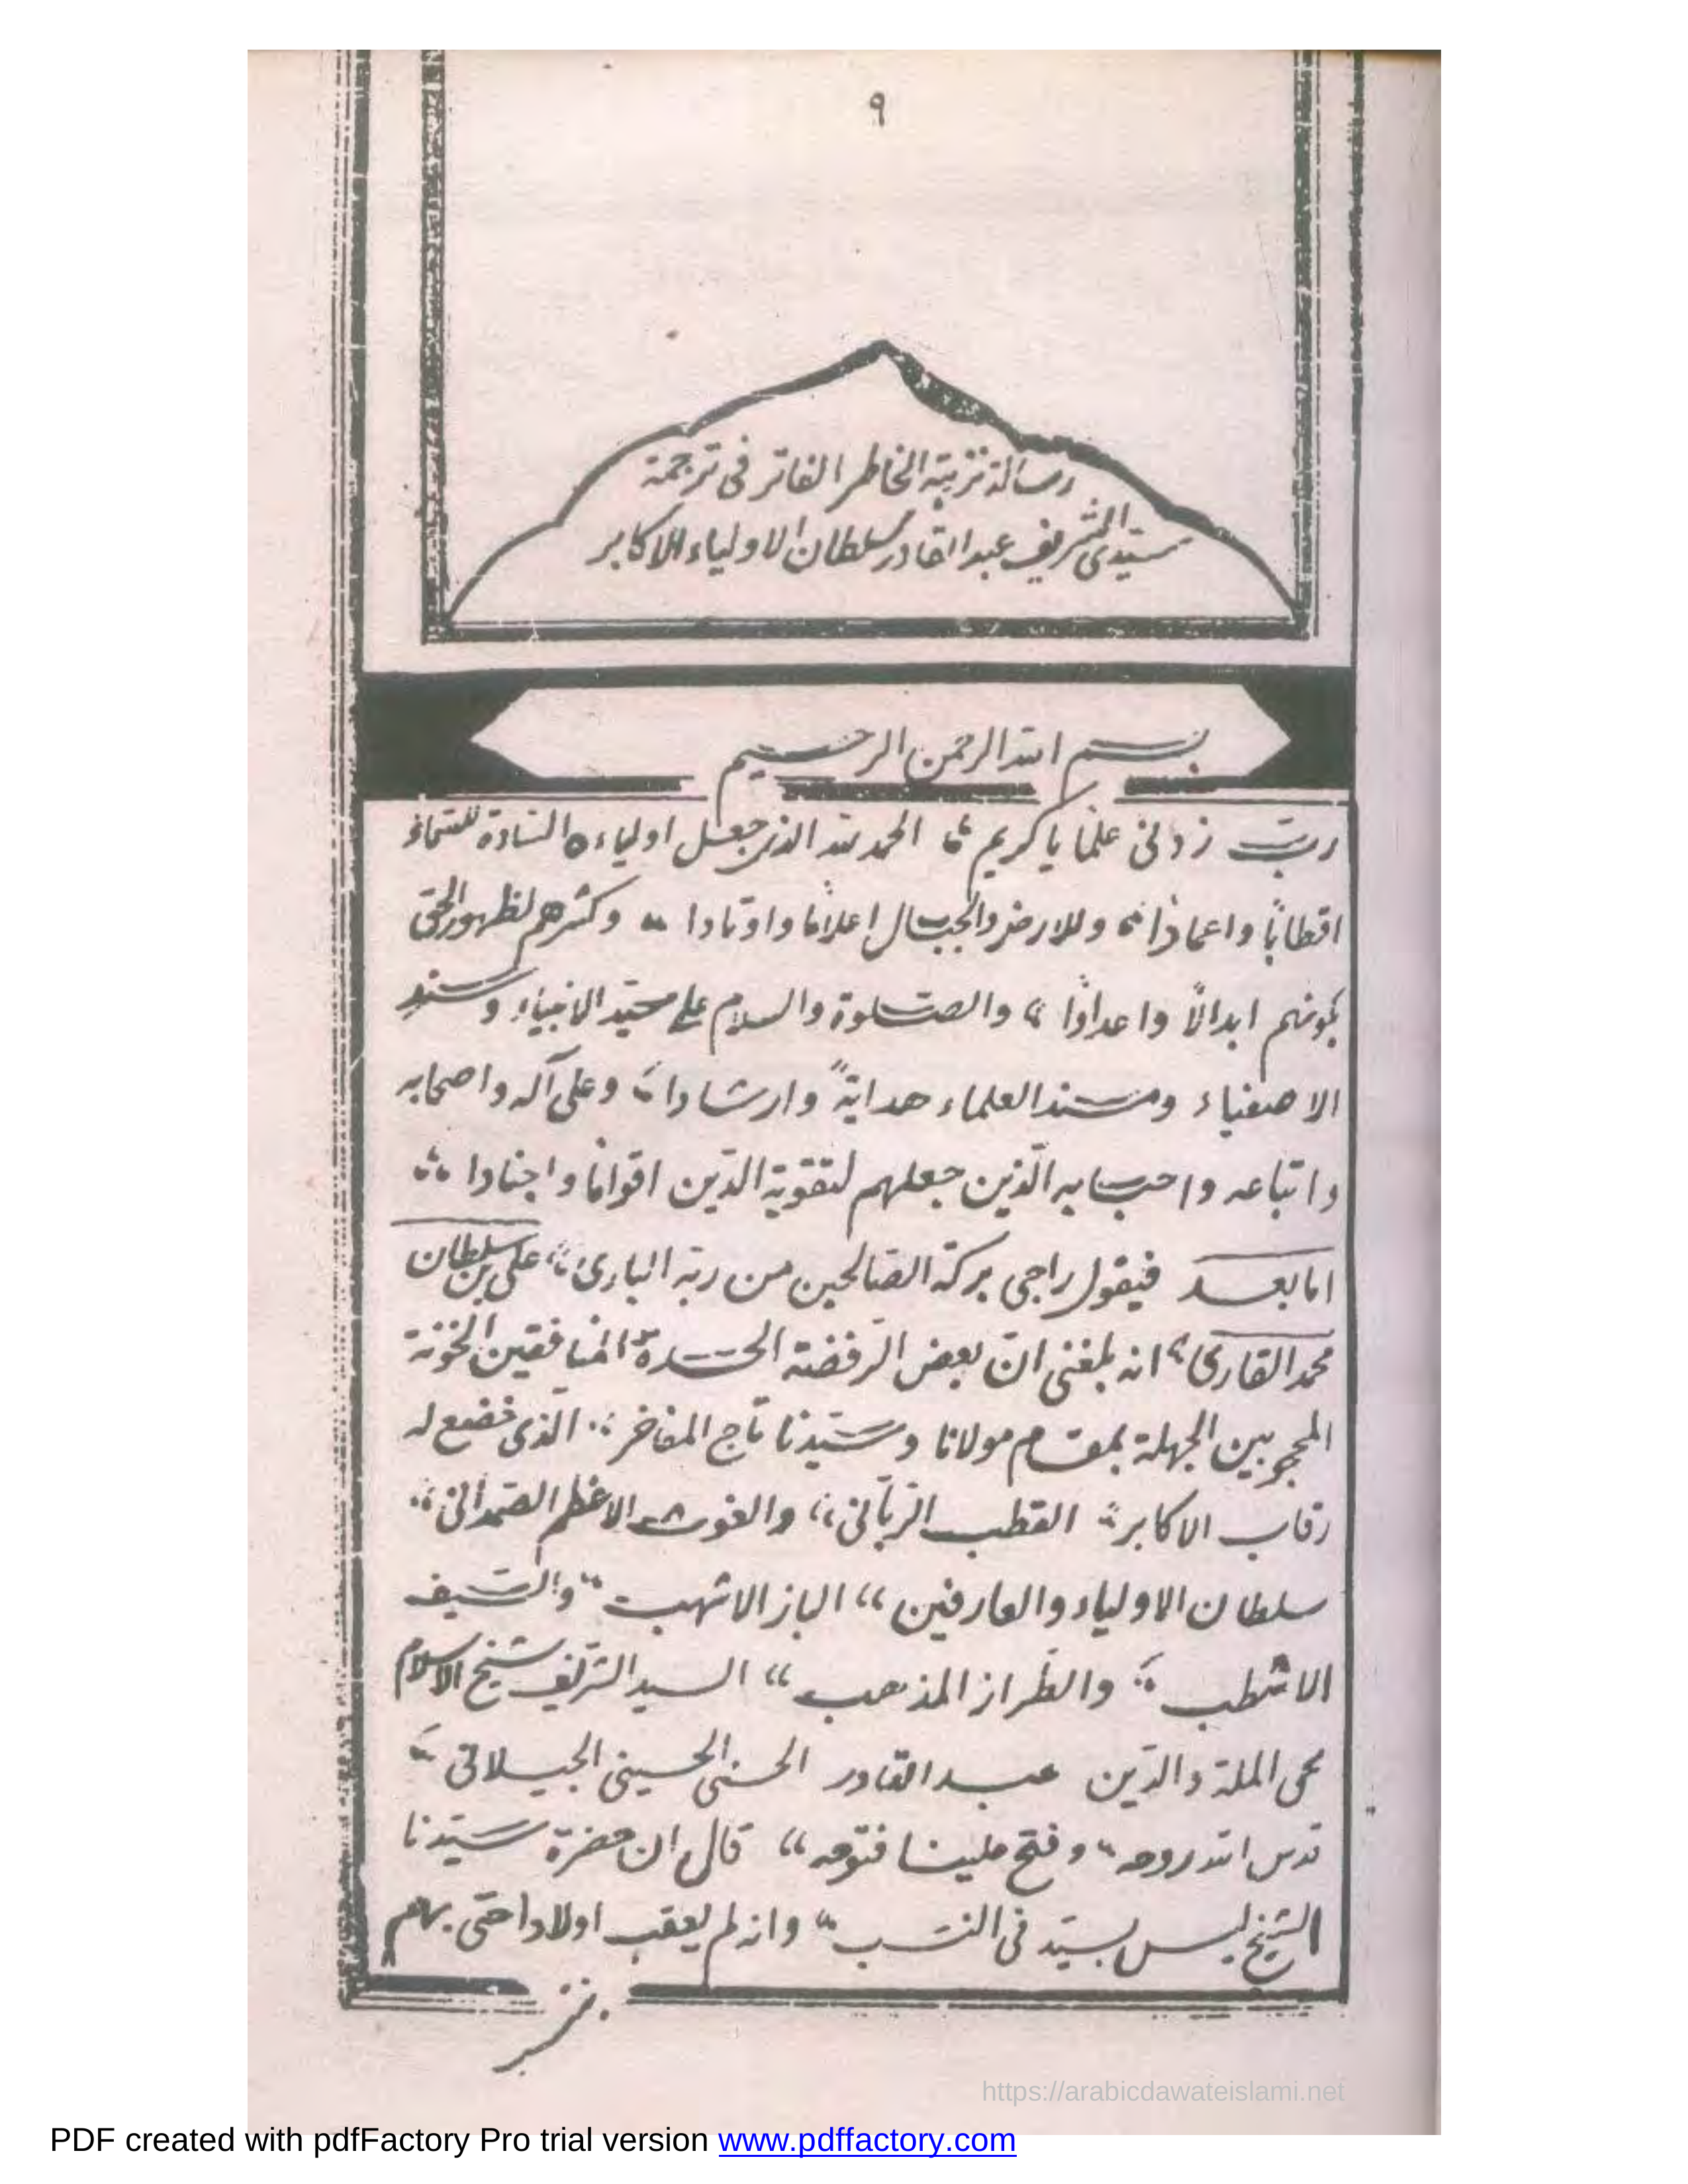 ٩
رسالة نزهة الخاطر الفاتر فى ترجمة
سيّدى الشريف عبد القادر سلطان الاولياء الاكابر
بسم الله الرحمن الرحيم
ربّ زدنى علمًا يا كريم الحمد لله الذى جعل اولياءه السّادة للسّماء
اقطابًا واعمادًا وللارض والجبال اعلامًا واوتادا وكثرهم لظهور الحق
بكونهم ابدالًا واعدادًا والصّلوة والسلام على سيّد الانبياء وسند
الاصفياء ومسند العلماء هدايةً وارشادا وعلى آله واصحابه
واتباعه واحبابه الّذين جعلهم لتقوية الدّين اقوامًا واجنادا
اما بعد فيقول راجى بركة الصّالحين من ربّه البارى علىّ بن سلطان
محمد القارى انه بلغنى انّ بعض الرّفضة الحسدة المنافقين الخونة
المحجوبين الجهلة بمقام مولانا وسيّدنا تاج المفاخر الّذى خضع له
رقاب الاكابر القطب الرّبّانى والغوث الاعظم الصّمدانى
سلطان الاولياء والعارفين الباز الاشهب والسّيف
الاشطب والطّراز المذهب السيد الشّريف شيخ الاسلام
محى الملة والدّين عبد القادر الحسنى الحسينى الجيلانى
قدس الله روحه وفتح علينا فتوحه قال ان حضرة سيّدنا
الشّيخ ليس بسيّد فى النّسب وانه لم يعقب اولادا حتى بهم
https://arabicdawateislami.net
PDF created with pdfFactory Pro trial version www.pdffactory.com